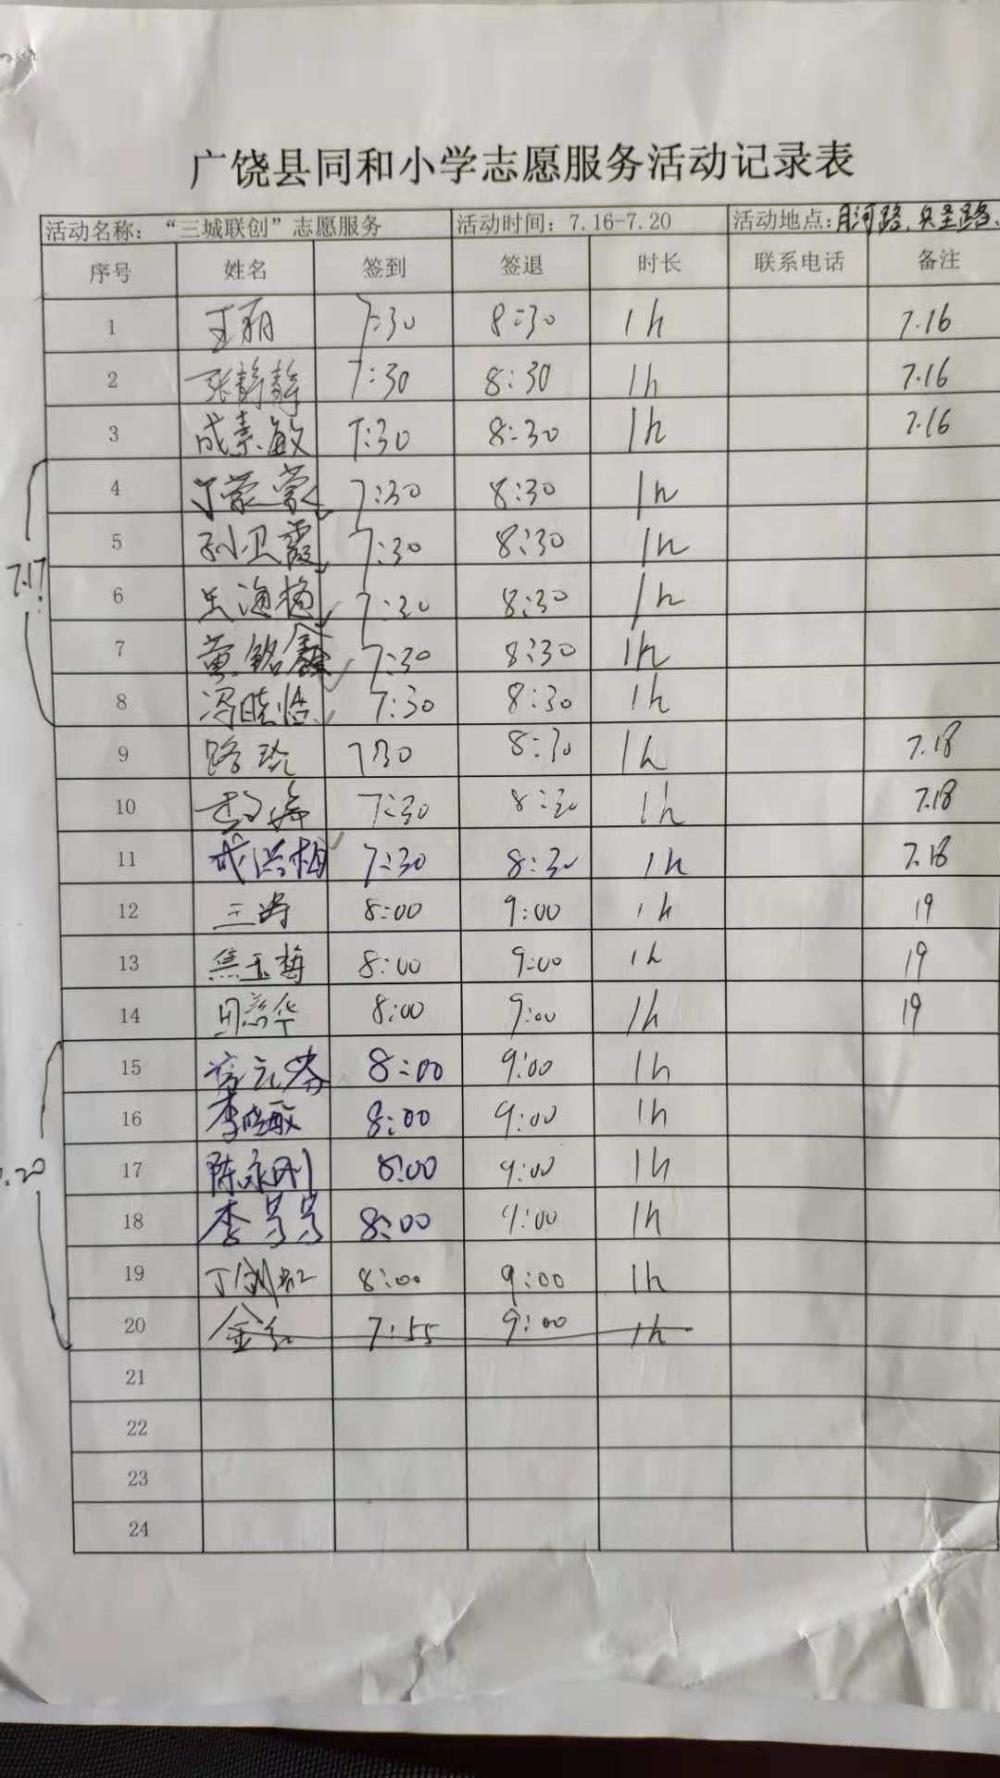 广饶县同和小学志愿服务活动记录表
活动名称：“三城联创”志愿服务 活动时间：7.16-7.20 活动地点：月河路、兵圣路、
序号 姓名 签到 签退 时长 联系电话 备注
1 王丽 7:30 8:30 1h 7.16
2 张静静 7:30 8:30 1h 7.16
3 成素敏 7:30 8:30 1h 7.16
7.17
4 丁蒙蒙 7:30 8:30 1h
5 孙卫霞 7:30 8:30 1h
6 7:30 8:30 1h
7 黄铭鑫 7:30 8:30 1h
8 冯晓 7:30 8:30 1h
9 路 730 8:30 1h 7.18
10 7:30 8:30 1h 7.18
11 成洪梅 7:30 8:30 1h 7.18
12 8:00 9:00 1h 19
13 焦玉梅 8:00 9:00 1h 19
14 周 华 8:00 9:00 1h 19
.20
15 8:00 9:00 1h
16 李晓敏 8:00 9:00 1h
17 陈永刚 8:00 9:00 1h
18 李 8:00 9:00 1h
19 丁剑虹 8:00 9:00 1h
20 金红 7:55 9:00 1h
21
22
23
24